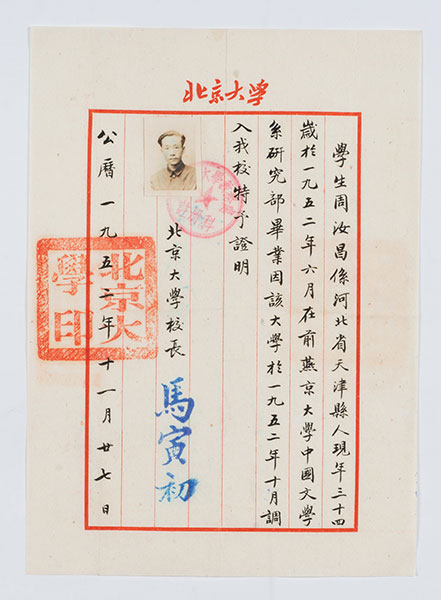 北京大学
學生周汝昌係河北省天津縣人現年三十四
歲於一九五二年六月在前燕京大學中國文學
系研究部畢業因該大學於一九五二年十月調
入我校特予證明
北京大學校長
馬寅初
公曆一九五二年十一月廿七日
北京大學印